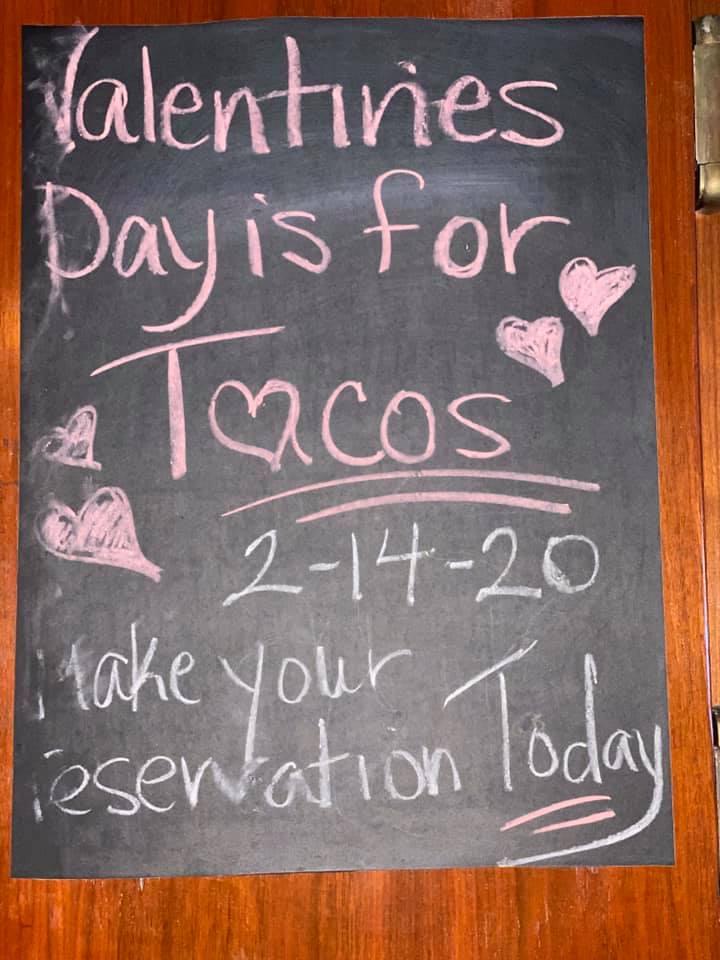 Valentines
Day is for
Tacos
2-14-20
Make your
reservation Today